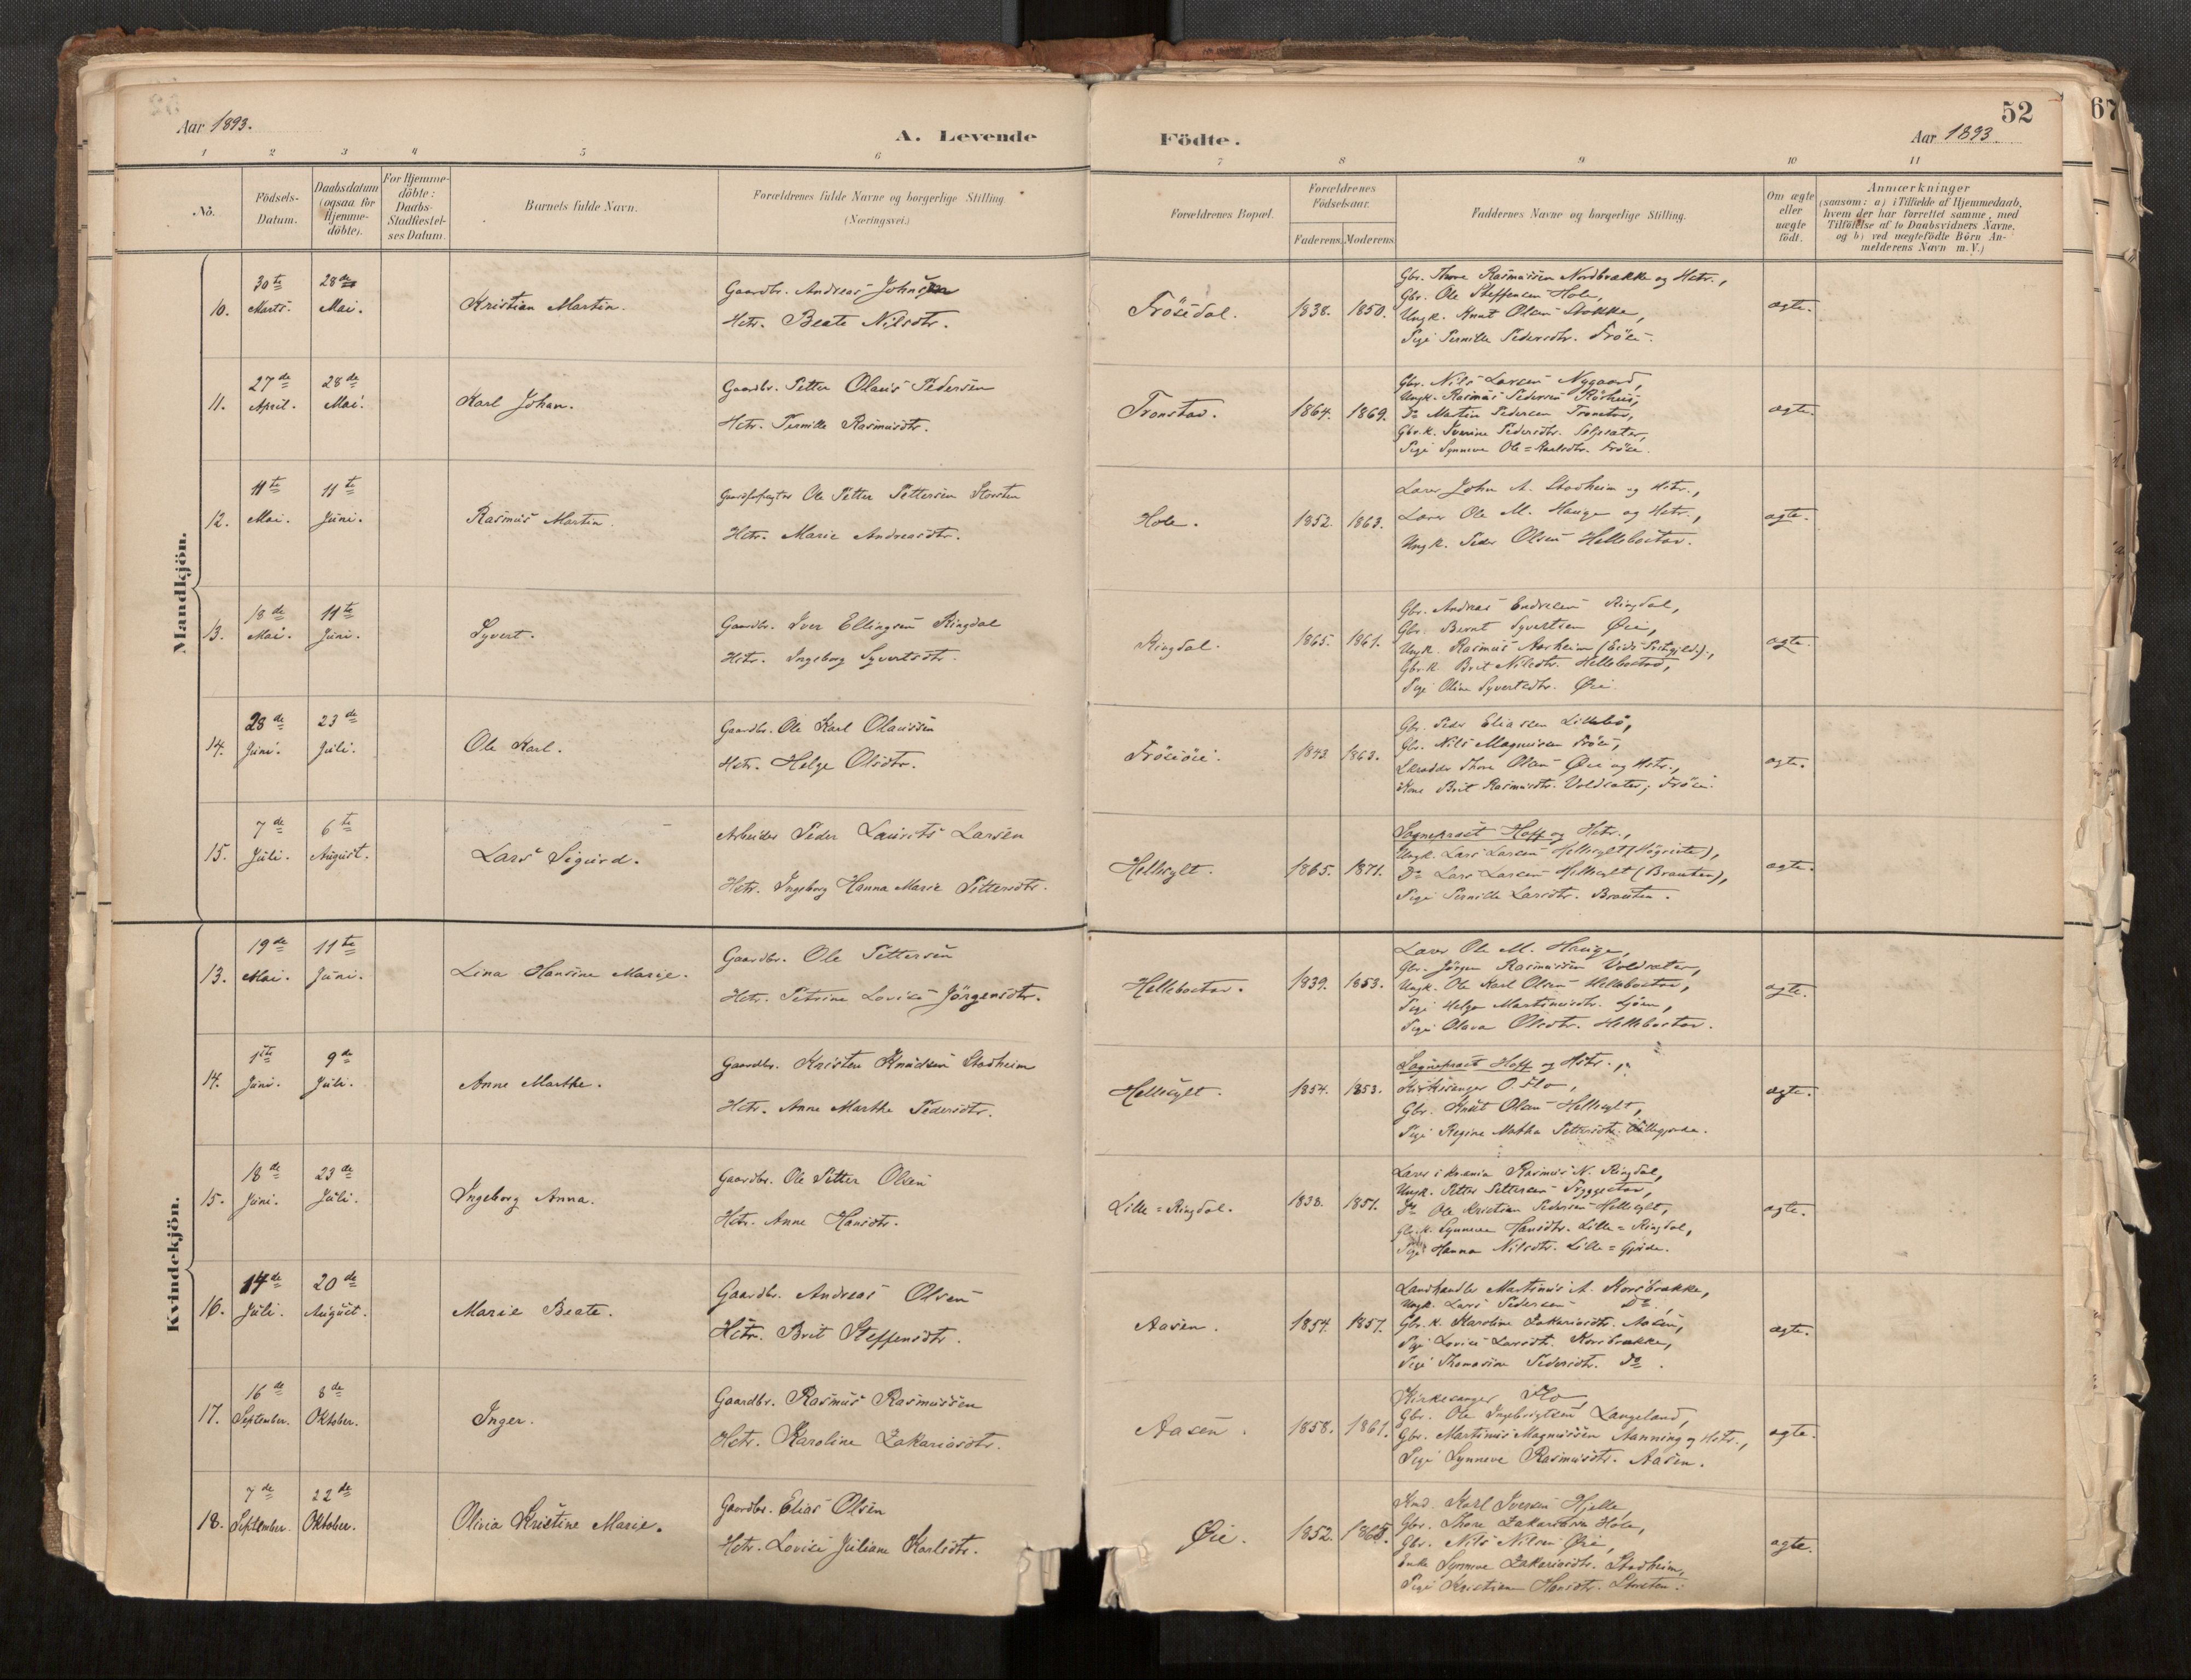 Aar 1893.
A. Levende
1 2 3 4 5 6
No.
Födsels-
Datum.
Daabsdatum
(ogsaa for
Hjemme-
döbte).
For Hjemme-
döbte:
Daabs-
Stadfæstel-
ses Datum.
Barnets fulde Navn.
Forældrenes fulde Navne og borgerlige Stilling
(Næringsvei.)
Mandkjön.
10. 30te Marts. 28de Mai. Kristian Martin.
Gaardbr. Andreas Johnsen
Hstr. Beate Nilsdtr.
11. 27de April. 28de Mai. Karl Johan.
Gaardbr. Petter Olaus Pedersen
Hstr. Pernille Rasmusdtr.
12. 11te Mai. 11te Juni. Rasmus Martin.
Ole Petter Pettersen Storsten
Hstr. Marie Andreasdtr.
13. 18de Mai. 11te Juni. Syvert.
Gaardbr. Iver Ellingsen Ringdal
Hstr. Ingeborg Syvertsdtr.
14. 28de Juni. 23de Juli. Ole Karl.
Gaardbr. Ole Karl Olaussen
Hstr. Helge Olsdtr.
15. 7de Juli. 6te August. Lars Sigurd.
Arbeider Peder Laurits Larsen
Hstr. Ingeborg Hanna Marie Pettersdtr.
Kvindekjön.
13. 19de Mai. 11te Juni. Lina Hansine Marie.
Gaardbr. Ole Pettersen
Hstr. Petrine Lovise Jörgensdtr.
14. 1ste Juni. 9de Juli. Anne Marthe.
Gaardbr. Kristen Knudsen Stadheim
Hstr. Anne Marthe Pedersdtr.
15. 18de Juni. 23de Juli. Ingeborg Anna.
Gaardbr. Ole Petter Olsen
Hstr. Anne Hansdtr.
16. 14de Juli. 20de August. Marie Beate.
Gaardbr. Andreas Olsen
Hstr. Brit Steffensdtr.
17. 16de September. 8de Oktober. Inger.
Gaardbr. Rasmus Rasmussen
Hstr. Karoline Zakariasdtr.
18. 7de September. 22de Oktober. Olivia Kristine Marie.
Gaardbr. Elias Olsen
Hstr. Lovise Juliane Karlsdtr.
52
67
Födte.
Aar 1893
7 8 9 10 11
Forældrenes Bopæl.
Forældrenes
Födselsaar.
Faderens. Moderens.
Faddernes Navne og borgerlige Stilling.
Om ægte
eller
uægte
födt.
Anmærkninger
(saasom: a) i Tilfælde af Hjemmedaab,
hvem der har forrettet samme, med
Tilföielse af to Daabsvidners Navne,
og b) ved uægtefödte Börn An-
melderens Navn m. V.)
Frösedal. 1838. 1850. ægte.
Gbr. Thore Rasmussen Nordbrække og Hstr.,
Gbr. Ole Steffensen Hole,
Ungk. Knut Olsen Stokke,
Pige Pernille Pedersdtr. Fröse.
Tronstad. 1864. 1869. ægte.
Gbr. Nils Larsen Nygaard,
Ungk. Rasmus Pedersen
Do Martin Pedersen Tronstad,
Gbr.k. Iverine Pedersdtr.
Pige Synneve Ole=Karlsdtr. Fröse.
Hole. 1852. 1863. ægte.
Lærer John A. Stadheim og Hstr.,
Lærer Ole M. Hauge og Hstr.,
Ungk. Peder Olsen Hellebostad.
Ringdal. 1865. 1861. ægte.
Gbr. Andreas Endresen Ringdal,
Gbr. Bernt Syvertsen Øie,
Ungk. Rasmus Aarheim
Gbr.k. Brit Nilsdtr. Hellebostad,
Pige Oline Syvertsdtr. Øie.
Frösöie. 1843. 1863. ægte.
Gbr. Peder Eliassen Lillebö,
Gbr. Nils Magnussen Fröse,
Skrædder Thore Olsen Øie og Hstr.,
Kone Brit Rasmusdtr. Voldsæter, Fröse.
Hellesylt. 1865. 1871. ægte.
Sognepræst Hoff og Hstr.,
Ungk. Lars Larsen Hellesylt
Do Lars Larsen Hellesylt (Brauten),
Pige Pernille Larsdtr. Brauten.
Hellebostad. 1839. 1853. ægte.
Lærer Ole M. Hauge,
Gbr. Jörgen Rasmussen Voldsæter,
Ungk. Ole Karl Olsen Hellebostad,
Pige Helga Martinusdtr. Ljöen,
Pige Olava Olsdtr. Hellebostad.
Hellesylt. 1854. 1853. ægte.
Sognepræst Hoff og Hstr.,
Kirkesanger O. Flo,
Gbr. Knut Olsen Hellesylt,
Pige Regine Pettersdtr.
Lille=Ringdal. 1838. 1851. ægte.
Rasmus N. Ringdal,
Ungk. Petter Pettersen Tryggestad,
Do Ole Kristian Pedersen Hellesylt,
Gbr.k. Synneve Hansdtr. Lille=Ringdal,
Pige Hanna Nilsdtr. Lille=Gjerde.
Aasen. 1854. 1857. ægte.
Landhandler Martinus A. Korsbrække,
Ungk. Lars Pedersen Do,
Gbr.k. Karoline Zakariasdtr. Aasen,
Pige Lovise Larsdtr. Korsbrække,
Pige Thomasine Pedersdtr. Do.
Aasen. 1858. 1861. ægte.
Kirkesanger Flo,
Gbr. Ole Ingebrigtsen Langeland,
Gbr. Martinus Magnussen Nanning og Hstr.,
Pige Synneve Rasmusdtr. Aasen.
Øie. 1852. 1865. ægte.
Karl Iversen Hjelle,
Gbr. Thore Zakariassen Hole,
Gbr. Nils Nilsen Øie,
Enke Synneve Zakariasdtr. Stadheim,
Pige Kristiane Hansdtr. Storsten.